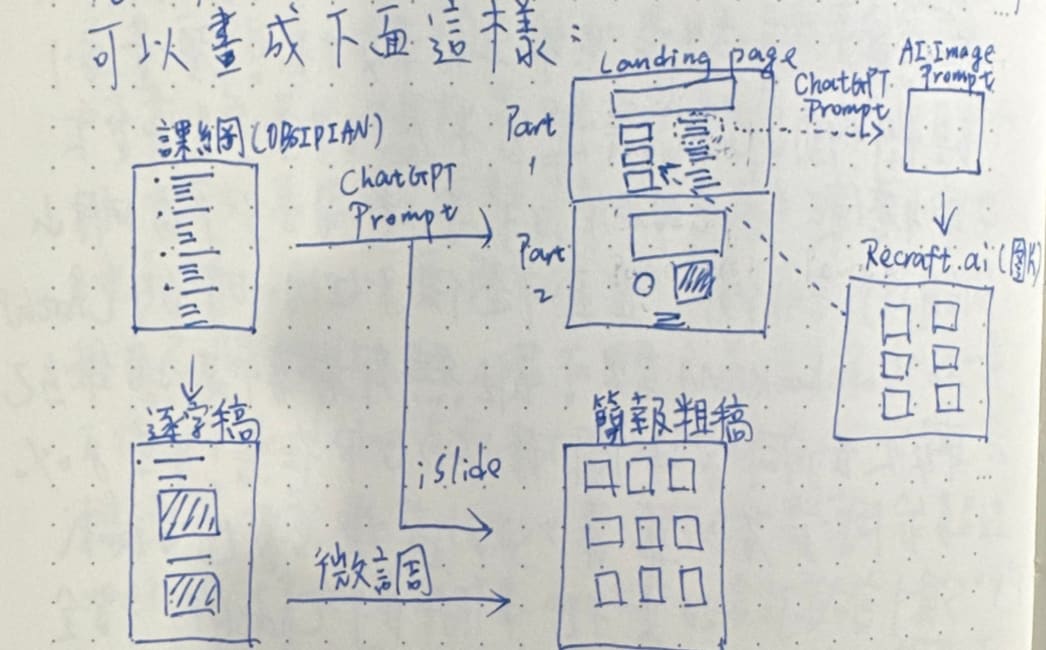 可以畫成下面這樣：
Landing page
AI Image
Prompt
ChatGPT
Prompt
Part
1
課綱(OBSIDIAN)
ChatGPT
Prompt
Part
2
Recraft.ai(圖片)
逐字稿
簡報粗稿
iSlide
微調